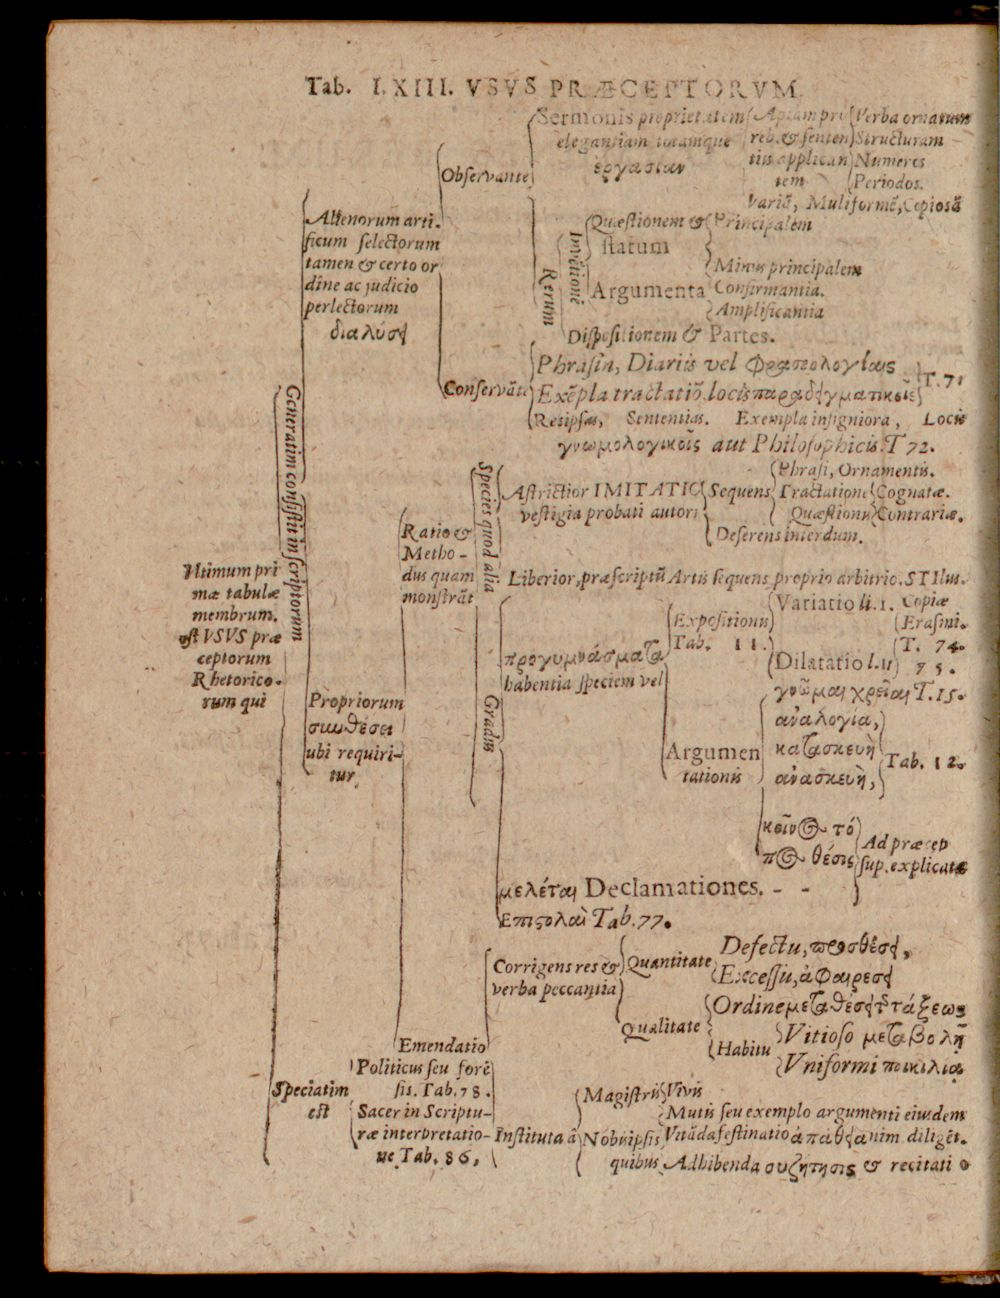 Tab. LXIII. VSVS PRÆCEPTORVM
Sermonis proprietatem
elegantiam totamque
ἐργασίαν
Aptam pro
reb. & senten
tiis applican
tem
Verba ornatum
Structuram
Numeros
Periodos.
Variã, Muliformẽ, Copiosã
Observante
Alienorum arti-
ficum selectorum
tamen & certo or
dine ac judicio
perlectorum
διαλύσει
Rerum
Inventionẽ
Quæstionem &
statum
Principalem
Minus principalem
Argumenta
Confirmantia.
Amplificantia
Dispositionem & Partes.
Conservãte
Phrasin, Diariis vel φρασπολογίαις
Exẽpla tractatiõ. locis παραδειγματικοῖς
T. 71
Resipsas, Sententias. Exempla insigniora, Locis
γνωμολογικοῖς aut Philosophicis. T 72.
Generatim consistit in scriptorum
Species quod alia
Astrictior IMITATIO
vestigia probati autoris
Sequens
Phrasi, Ornamentis.
Tractatione
Quæstionis
Cognatæ.
Contrariæ.
Deserens interdum.
Ratio &
Metho-
dus quam
monstrãt
Liberior, præscriptũ Artis sequens proprio arbitrio. STIlus.
Vltimum pri
mæ tabulæ
membrum.
est VSVS præ
ceptorum
Rhetorico-
rum qui
Propriorum
συνθέσει
ubi requiri-
tur
Gradus
προγυμνάσματα
habentia speciem vel
Expositionis
Tab. 11.
Variatio li. 1. Copiæ
Erasmi.
Dilatatio l. ii
T. 74.
75.
Argumen
tationis
γνῶμαι χρεῖαι T. 15.
ἀναλογία,
κατασκευὴ
ἀνασκευὴ,
Tab. 12.
κοῖνος τό
πος θέσις
Ad præcep
sup. explicata
μελέται Declamationes. - -
Επιστολαὶ Tab. 77.
Emendatio
Corrigens res &
verba peccantia
Quantitate
Defectu, προσθέσει,
Excessu, ἀφαιρεσει
Qualitate
Ordine μεταθέσει τῆς τάξεως
Habitu
Vitioso μεταβολῇ
Vniformi ποικιλίᾳ
Speciatim
est
Politicus seu forẽ
sis. Tab. 78.
Sacer in Scriptu-
ræ interpretatio-
ne Tab. 86,
Instituta â
Magistris
Vivis
Mutis seu exemplo argumenti eiusdem
Nobis ipsis
quibus
Vitãda festinatio ἀπάθεια nim. diligẽt.
Adhibenda συζήτησις & recitatio